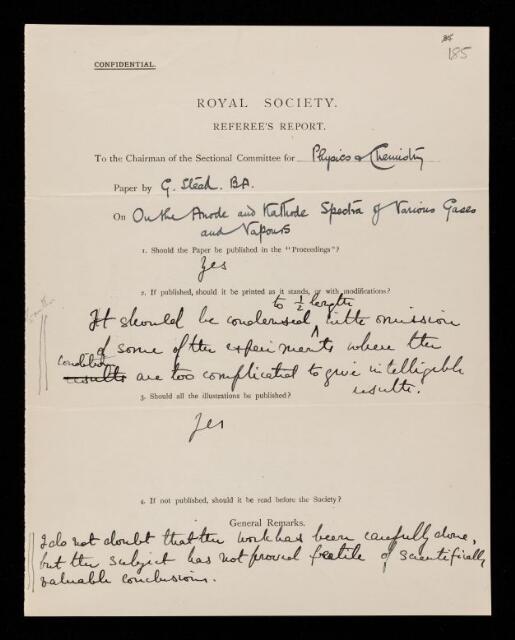 185
CONFIDENTIAL.
ROYAL SOCIETY.
REFEREE'S REPORT.
To the Chairman of the Sectional Committee for Physics & Chemistry
Paper by G. Stead. B.A.
On On the Anode and Kathode Spectra of Various Gases
and Vapours
1. Should the Paper be published in the "Proceedings"?
Yes
2. If published, should it be printed as it stands, or with modifications?
to ½ length
It should be condensed ^ with omission
of some of the experiments where the
conditions
results are too complicated to give intelligible
results.
3. Should all the illustrations be published?
Yes
4. If not published, should it be read before the Society?
General Remarks.
I do not doubt that the work has been carefully done,
but the subject has not proved fertile of scientifically
valuable conclusions.